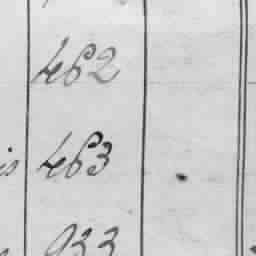 462
is 463
933